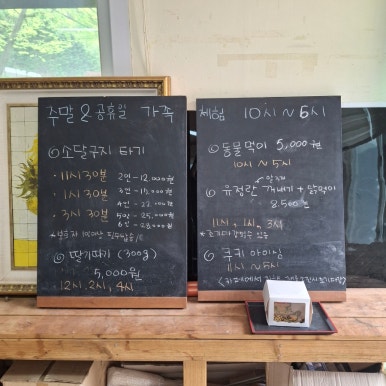 주말 & 공휴일 가족
◎ 소달구지 타기
· 11시 30분
· 1시 30분
· 3시 30분
2인 - 12,000원
3인 -
4인 -
5인 - 25,000원
6인 - 28,000원
◎ 딸기따기 (300g)
5,000원
12시, 2시, 4시
체험 10시 ~ 6시
◎ 동물먹이 5,000원
10시 ~ 5시
◎ 유정란 꺼내기 + 닭먹이
8,500원
11시, 1시, 3시
◎ 쿠키 아이싱
11시 ~ 5시